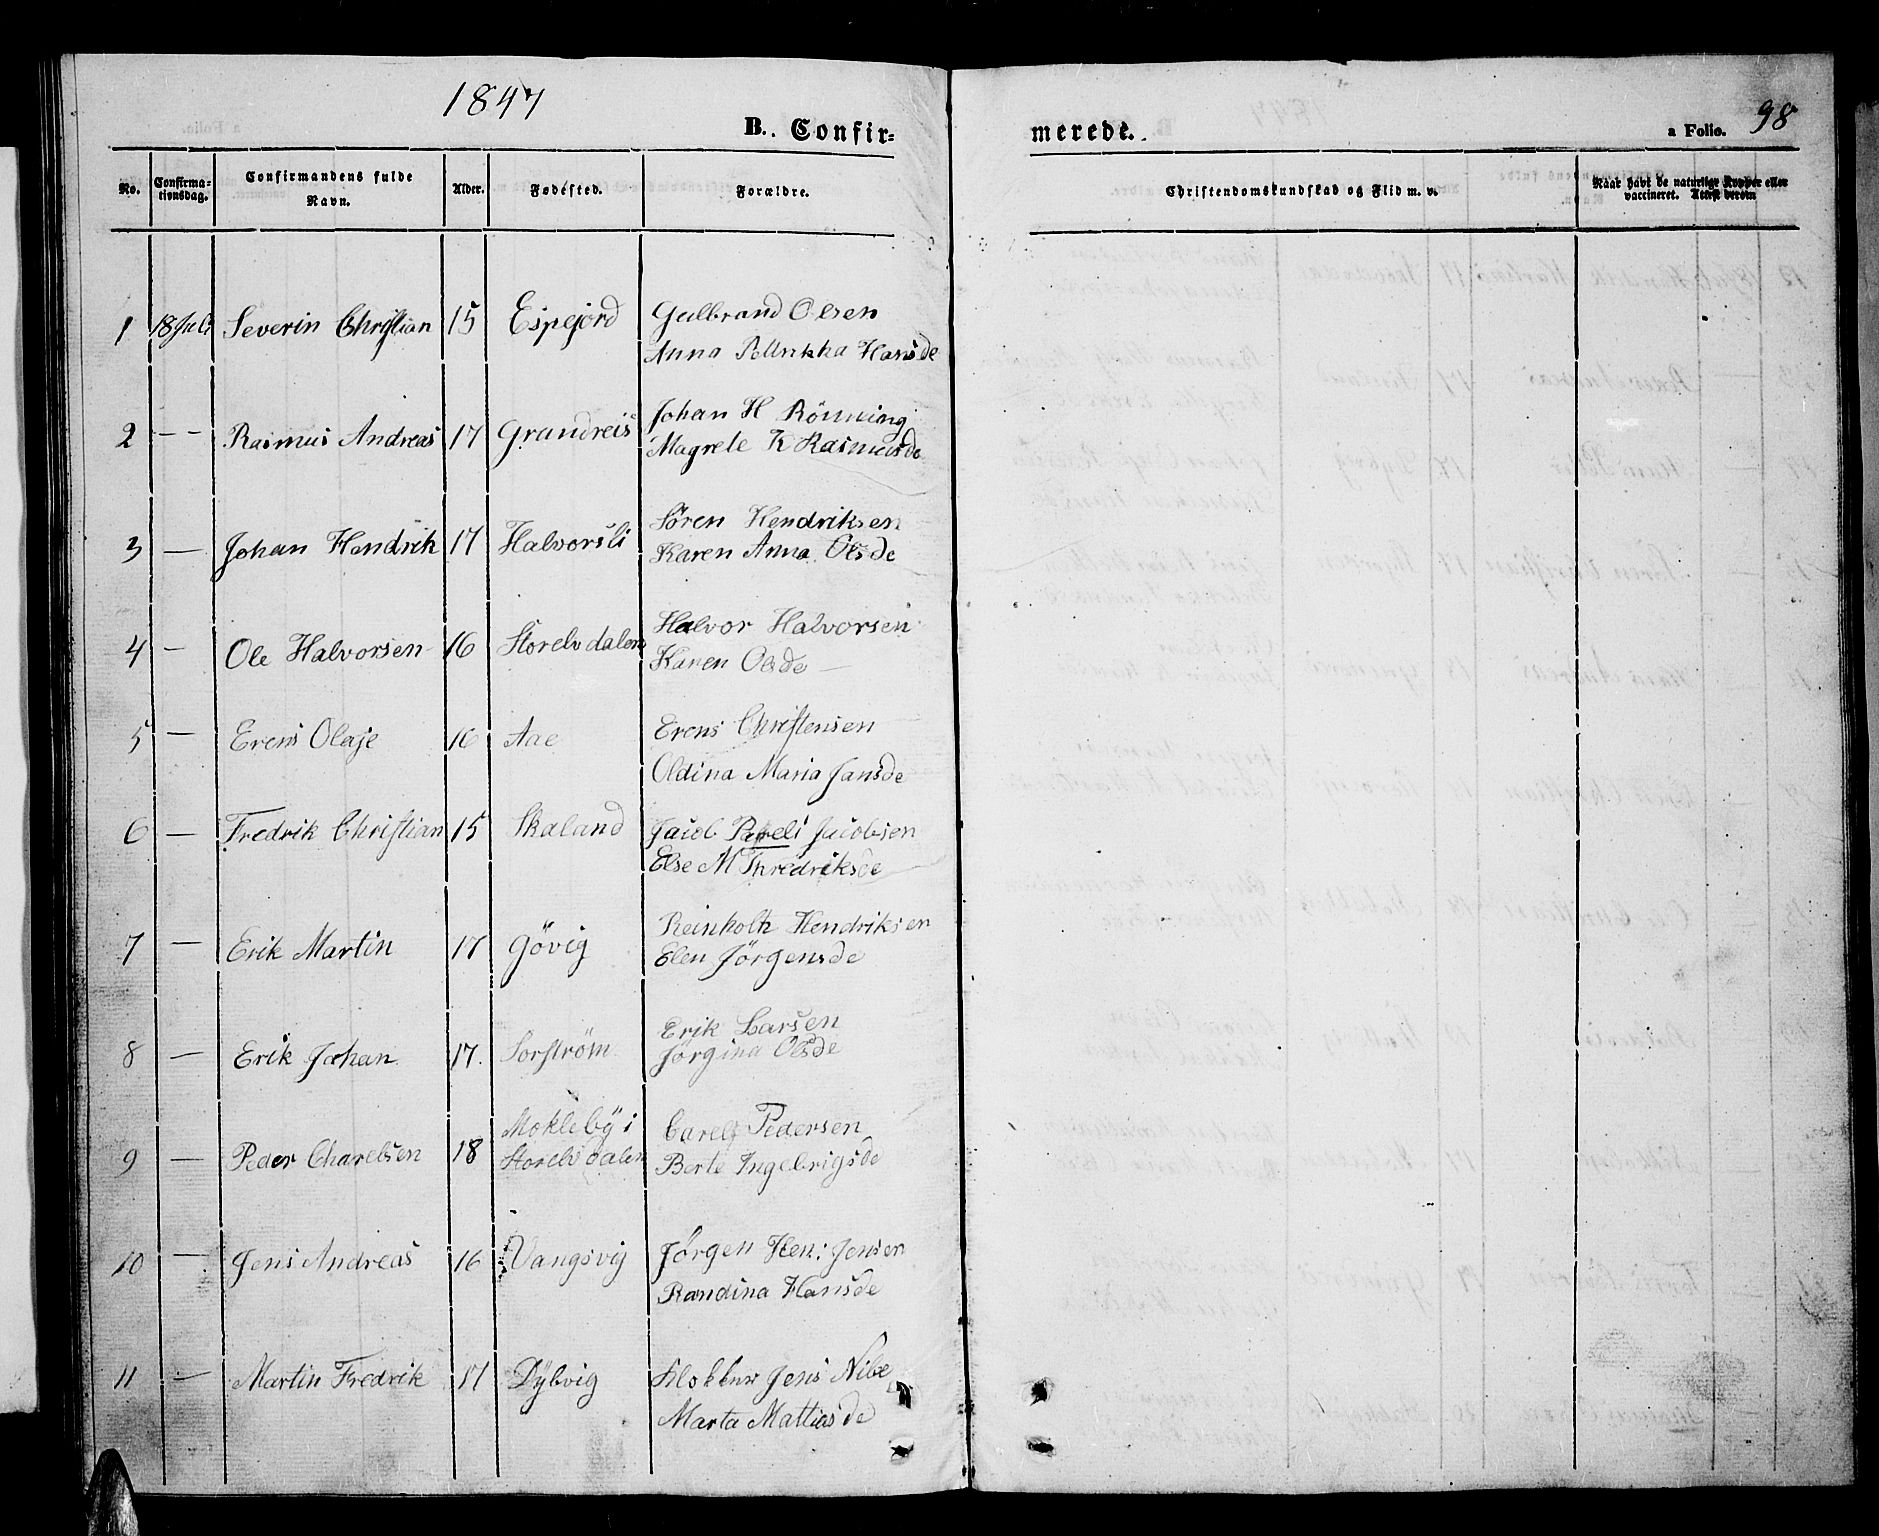 1847
B. Confir-
merede.
a Folio. 98
No.
Confirma-
tionsdag.
Confirmandens fulde
Navn.
Alder.
Fødested.
Forældre.
Christendomskundskab og Flid m. v.
Naar havt de naturlige Kopper eller
vaccineret. Attest derom
1 18 Juli Severin Christian 15 Espejord Gulbrand Olsen
Anna Petrikka Hansde
2 -- Rasmus Andreas 17 Grandreis Johan H Rönning
Magrete K Rasmusde
3 — Johan Hendrik 17 Halvorsli Sören Hendriksen
Karen Anna Olsde
4 — Ole Halvorsen 16 Storelvdalen Halvor Halvorsen
Karen Olsde —
5 — Erens Olaje 16 Aae Erens Christensen
Oldina Maria Jansde
6 — Fredrik Christian 15 Skaland Jacob Jacobsen
Else M Thredriksde
7 — Erik Martin 17 Gövig Reinholtz Hendriksen
Elen Jörgensde
8 — Erik Johan 17. Sorström Erik Larsen
Jörgina Olsde
9 — Peder Charelsen 18 Moklebÿ i
Storelvdalen
Carel Pedersen
Berte Ingebrigsde
10 — Jens Andreas 16 Vangsvig Jørgen Hen: Jensen
Randina Hansde
11 — Martin Fredrik 17 Dÿbvig Klokker Jens Nibe
Marta Mattiasde